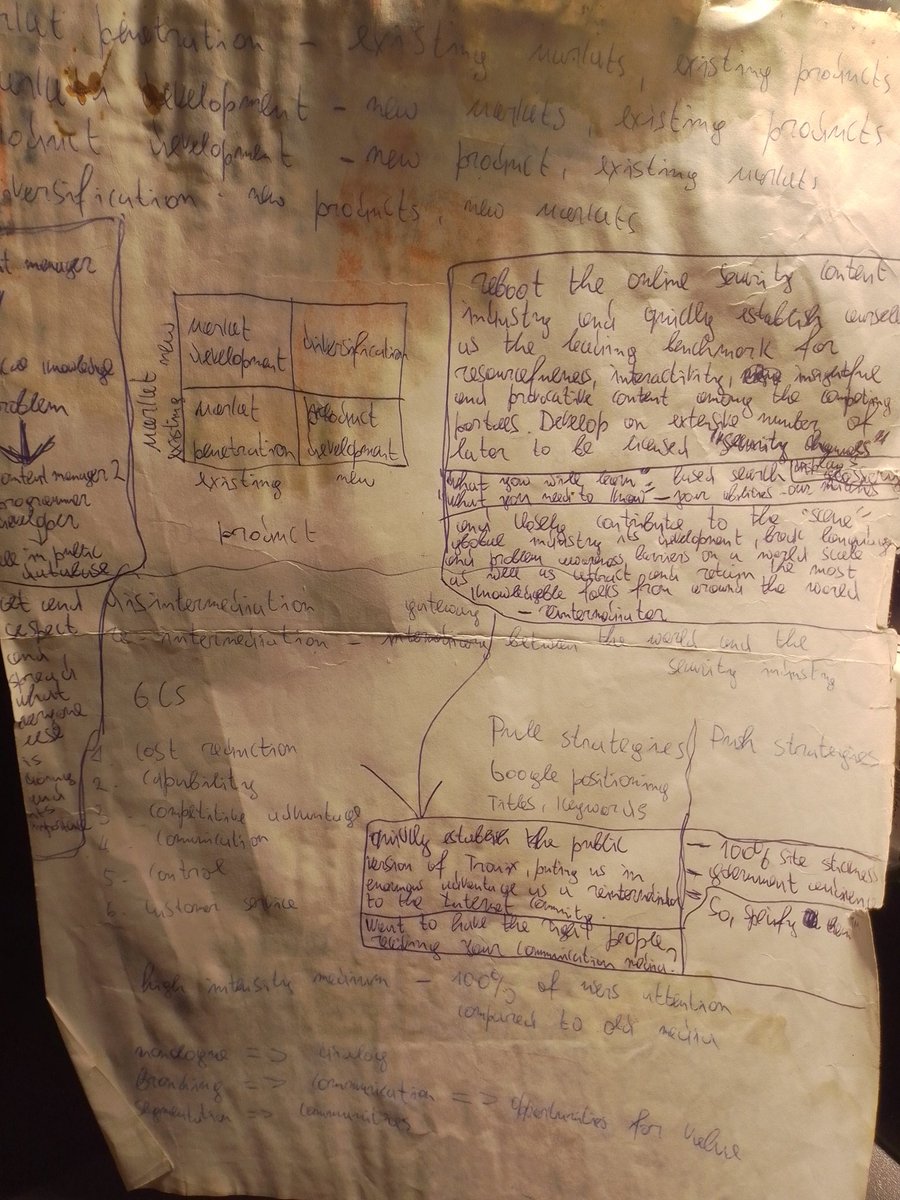 penetration - existing markets, existing products
development - new markets, existing products
development - new product, existing markets
new products, new markets
manager
knowledge
problem
content manager 2
programmer
developer
in public
database
market
development
diversification
market
penetration
product
development
market
existing new
existing new
product
reboot the online security content
industry and quickly establish ourselves
as the leading benchmark for
resourcefulness, interactivity, insightful
and provocative content among the competing
portals. Develop an extensive number of
later to be licensed "security
"what you will learn" based search
"what you need to know" - your abilities - our
and closely contribute to the "scene"
global industry its development, break
and problem awareness barriers on a world scale
as well as attract and retain the most
knowledgable folks from around the world
- reintermediator
disintermediation gateway
re-intermediation - between the world and the
security industry
and
respect
and
spread
what
everyone
else
is
and
6 CS
1 cost reduction
2. Capability
3 competitive advantage
4 comunication
5. Control
6. Customer service
Pull strategies
Google positioning
Titles, keywords
Push strategies
quickly establish the public
version of Tronix, puting us in
enormous advantage as a
to the Internet
want to have the right people
your communication media?
- 100% site
- government
So,
high intensity medium - 100% of users attention
compared to old media
monologue => dialog
Branding => communication => opportunities for value
segmentation => communities